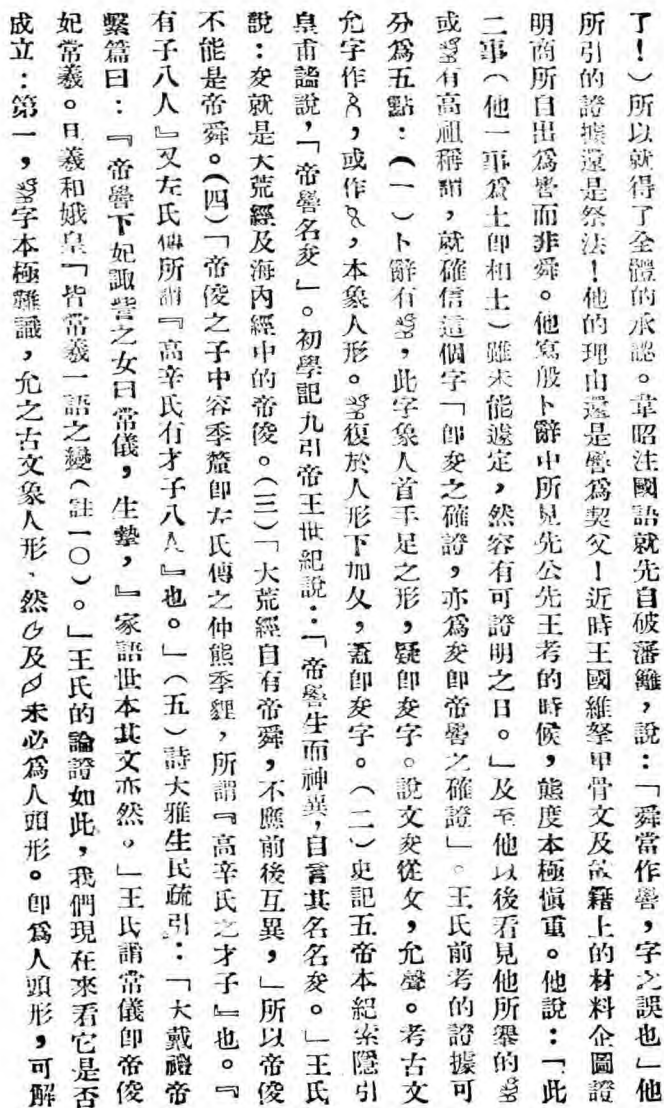 了！）所以就得了全體的承認。韋昭注國語就先自破藩籬，說：「舜當作嚳，字之誤也」他
所引的證據還是祭法！他的理由還是嚳爲契父！近時王國維拏甲骨文及故籍上的材料企圖證
明商所自出爲嚳而非舜。他寫殷卜辭中所見先公先王考的時候，態度本極愼重。他說：「此
二事（他一事爲土卽相土）雖未能遽定，然容有可證明之日。」及至他以後看見他所舉的
或有高祖稱謂，就確信這個字「卽夋之確證，亦爲夋卽帝嚳之確證」。王氏前考的證據可
分爲五點：（一）卜辭有，此字象人首手足之形，疑卽夋字。說文夋從夊，允聲。考古文
允字作，或作，本象人形。復於人形下加夊，蓋卽夋字。（二）史記五帝本紀索隱引
皇甫謐說，「帝嚳名夋」。初學記九引帝王世紀說：「帝嚳生而神異，自言其名名夋。」王氏
說：夋就是大荒經及海內經中的帝俊。（三）「大荒經自有帝舜，不應前後互異，」所以帝俊
不能是帝舜。（四）「帝俊之子中容季釐卽左氏傳之仲熊季貍，所謂『高辛氏之才子』也。『
有子八人』又左氏傳所謂『高辛氏有才子八人』也。」（五）詩大雅生民疏引：「大戴禮帝
繫篇曰：『帝嚳下妃諏訾之女曰常儀，生摯，』家語世本其文亦然。」王氏謂常儀卽帝俊
妃常羲。且羲和娥皇「皆常羲一語之變（註一〇）。」王氏的論證如此，我們現在來看它是否
成立：第一，字本極難識，允之古文象人形、然及未必爲人頭形。卽爲人頭形，可解